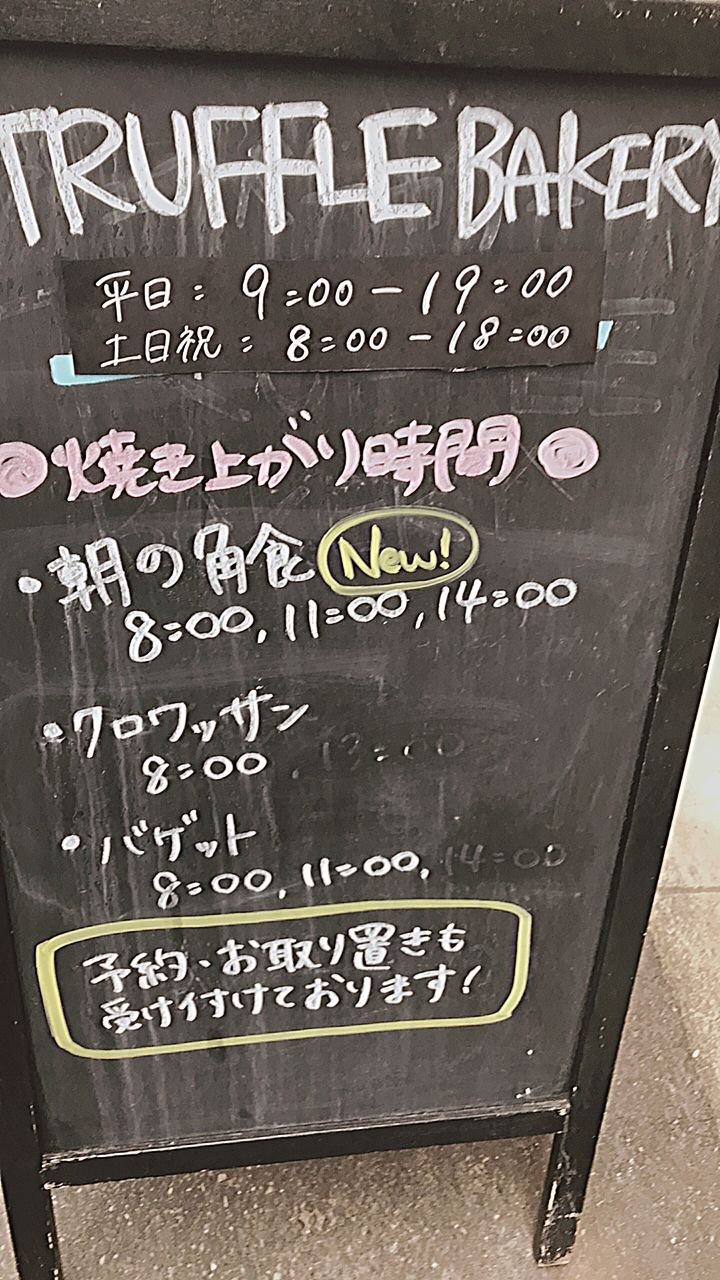 TRUFFLE BAKERY
平日: 9:00-19:00
土日祝: 8:00-18:00
◎焼き上がり時間◎
・朝の角食 New!
8:00, 11:00, 14:00
・クロワッサン
8:00, 13:00
・バゲット
8:00, 11:00, 14:00
予約、お取り置きも
受け付けております!